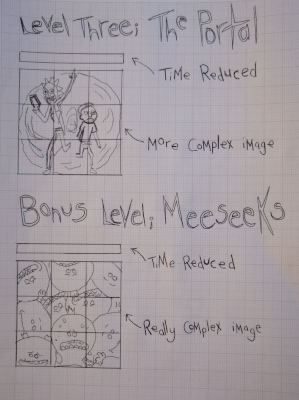 Level Three; The Portal
Time Reduced
More Complex image
Bonus Level; Meeseeks
Time Reduced
Really Complex image